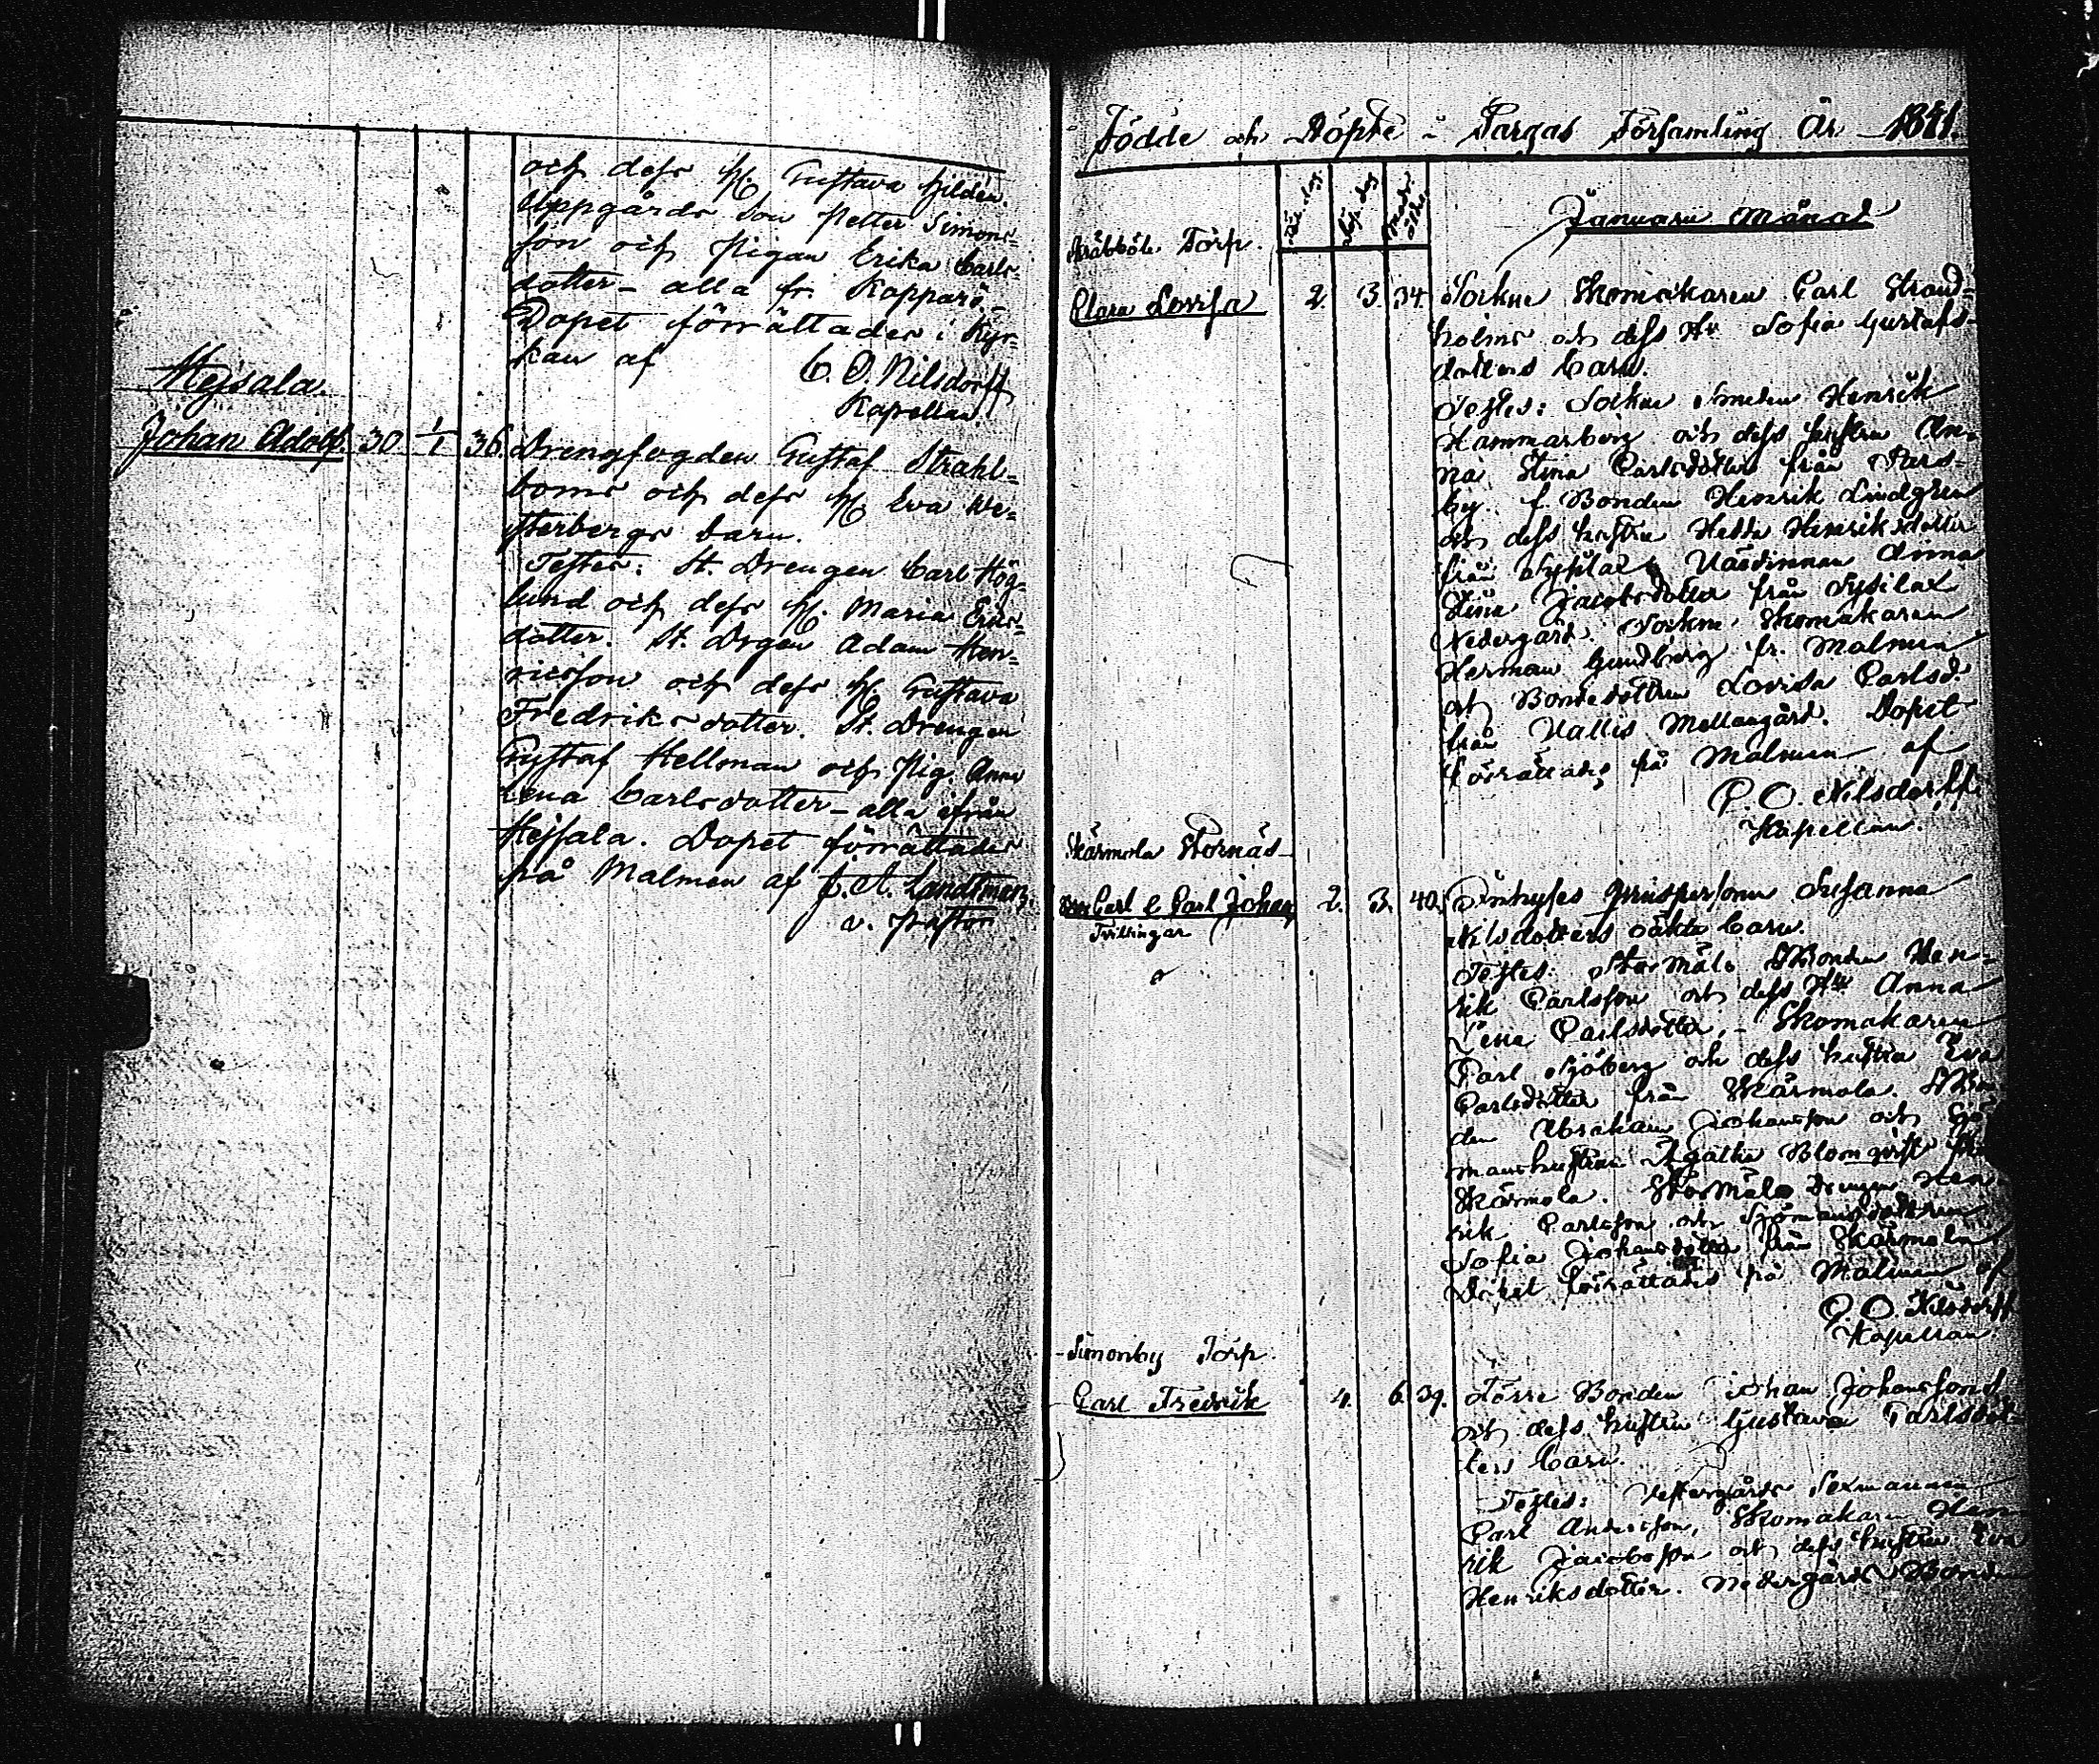 och dess H. Gustava Hildén.
Uppgårds Son Petter Simons=
son och Pigan Erika Carls=
dotter – alla fr. Kopparö –
Dopet förrättades i Kyr=
kan af
C. O. Nilsdorff
Kapellan.
Hejsala.
Johan Adolf. 30 1/1 36. Drengfogden Gustaf Strahl=
boms och dess H. Eva We=
sterbergs barn.
Testes: St. Drengen Carl Hög=
lund och dess H. Maria Erics=
dotter. St. Drgen Adam Hen=
ricsson och dess H. Gustava
Fredriksdotter. St. Drengen
Gustaf Hellman och Pig. Anna
Lena Carlsdotter – alla ifrån
Hejsala. Dopet förrättades
på Malmen af J. A. Landtman,
v. pastor
Födde och Döpte i Pargas Församling År 1841.
Januarii Månad
Torp.
Clara Lovisa 2. 3. 34. Sockne Skomakaren Carl Strand=
holms och dess H. Sofia Gustafs=
dotters barn.
Testes: Sockne Smeden Henrik
Hammarberg och dess hustru An=
na Stina Carlsdotter från Pars=
by. f. Bonden Henrik Lindgren
och dess hustru Hedda Henriksdotter
från Sysilax Värdinnan Anna
Stina Jacobsdotter från Sysilax
Nedergård. Sockne Skomakaren
Herman Lundberg fr. Malmen
och Bondedottren Lovisa Carlsd.
från Vallis Mellangård. Dopet
förrättades på Malmen af
C. O. Nilsdorff
Kapellan.
Skärmola Stornäs
Carl & Carl Johan 2. 3. 40. Inhyses Qvinspersonen Susanna
Nilsdotters oäkta barn.
Tvillingar
Testes: Starmäls Bonden Hen=
rik Carlsson och dess H. Anna
Lena Carlsdotter, – Skomakaren
Carl Sjöberg och dess hustru Eva
Carlsdotter från Skärmola.
den Abraham Johansson och Sjö
manshustrun Agatha Blomqvist
Skärmola. Starmäls Drengen Hen
rik Carlsson och Sjömansdottren
Sofia Johansdotter från Skärmola
Dopet förrättades på Malmen af
C. O. Nilsdorff
Kapellan
Simonby Torp.
Carl Fredrik 4. 6. 39. Förre Bonden Johan Johanssons
och dess hustru Gustava Carlsdot=
ters barn.
Testes: Vestergårds Sexmannen
Carl Andersson, Skomakaren Hen
rik Jacobsson och dess hustru Eva
Henriksdotter. Nedergårds Bonden